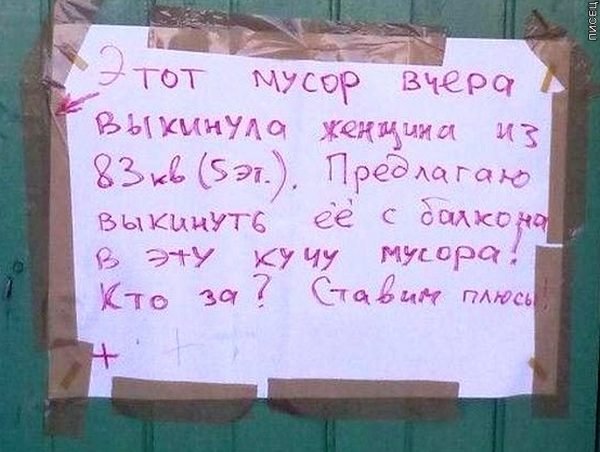 Этот мусор вчера
выкинула женщина из
83кв (5 эт.). Предлагаю
выкинуть её с балкона
в эту кучу мусора!
Кто за? Ставим плюсы!
+ + +
ПИСЕЦ